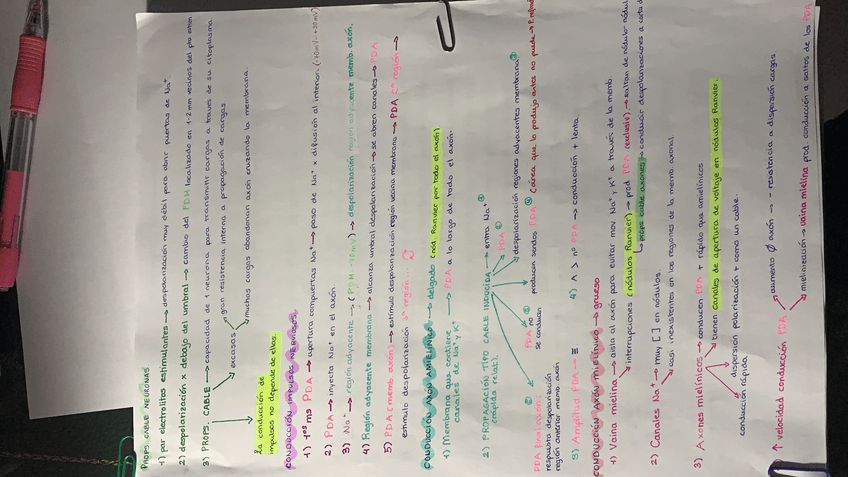 PROPS CABLE NEURONAS
1) por electrolitos estimulantes → despolarización muy débil para abrir puertas de Na⁺
2) despolarización x debajo del umbral → cambio del PDM localizado en 1-2 mm vecinos del pto estim
3) PROPS. CABLE → capacidad de 1 neurona para transmitir cargas a través de su citoplasma.
escasas → gran resistencia interna a propagación de cargas
muchas cargas abandonan axón cruzando la membrana.
la conducción de
impulsos no depende de ellas.
CONDUCCIÓN IMPULSOS NERVIOSOS.
1) 1ᵒˢ ms PDA → apertura compuertas Na⁺ → paso de Na⁺ x difusión al interior.
2) PDA → inyecta Na⁺ en el axón
3) Na⁺ → región adyacente → despolarización región adyacente memb. axón.
4) Región adyacente membrana → alcanza umbral despolarización → se abren canales → PDA
5) PDA (memb axón) → estímulo despolarización región vecina membrana → PDA 2ª región →
estímulo despolarización 3ª región ...
CONDUCCIÓN AXÓN AMIELÍNICO → delgado (nód. Ranvier por todo el axón)
1) Membrana que contiene canales de Na⁺ y K⁺ → PDA a lo largo de todo el axón.
2) PROPAGACIÓN TIPO CABLE INDUCIDA → entra Na⁺
(rápida relat).
PDA
despolarización regiones adyacentes membrana
producen sendos PDA (área que lo produjo antes no puede →
PDA no se conducen
respuesta despolarización
región anterior memb. axón
3) Amplitud PDA → ≡
4) ∧ > nº PDA → conducción + lenta.
CONDUCCIÓN AXÓN MIELÍNICO → grueso
1) Vaina mielina → aisla al axón para evitar mov Na⁺ K⁺ a través de la memb
interrupciones (nódulos Ranvier) → prod PDA (exclusiv) → saltan de nódulo nódul
props cable axones → conducir despolarizaciones a corta d
2) Canales Na⁺ → muy [ ] en nódulos
casi inexistentes en las regiones de la memb axonal.
3) Axones mielínicos → conducen PDA + rápido que amielínicos.
tienen canales de apertura de voltaje en nódulos Ranvier.
dispersión polarización + como un cable.
conducción rápida.
↑ velocidad conducción PDA
aumento ∅ axón → - resistencia a dispersión cargas
mielinización → vaina mielina prod conducción a saltos de los PDA